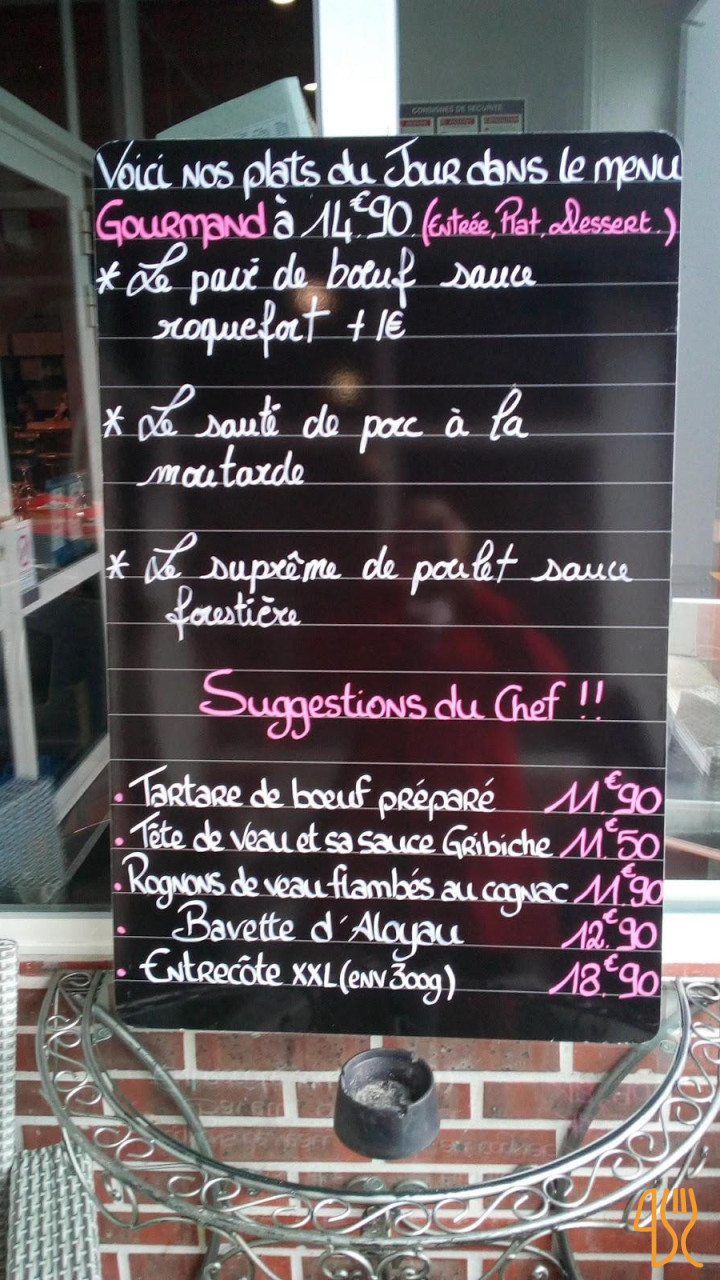 CONSIGNES DE SECURITE
Voici nos plats du Jour dans le menu
Gourmand à 14€90 (Entrée, Plat, Dessert.)
* Le pavé de bœuf sauce
roquefort + 1€
* Le sauté de porc à la
moutarde
* Le suprême de poulet sauce
forestière
Suggestions du Chef !!
• Tartare de bœuf préparé 11€90
• Tête de veau et sa sauce Gribiche 11€50
• Rognons de veau flambés au cognac 11€90
• Bavette d'Aloyau 12€90
• Entrecôte XXL (env 300g) 18€90